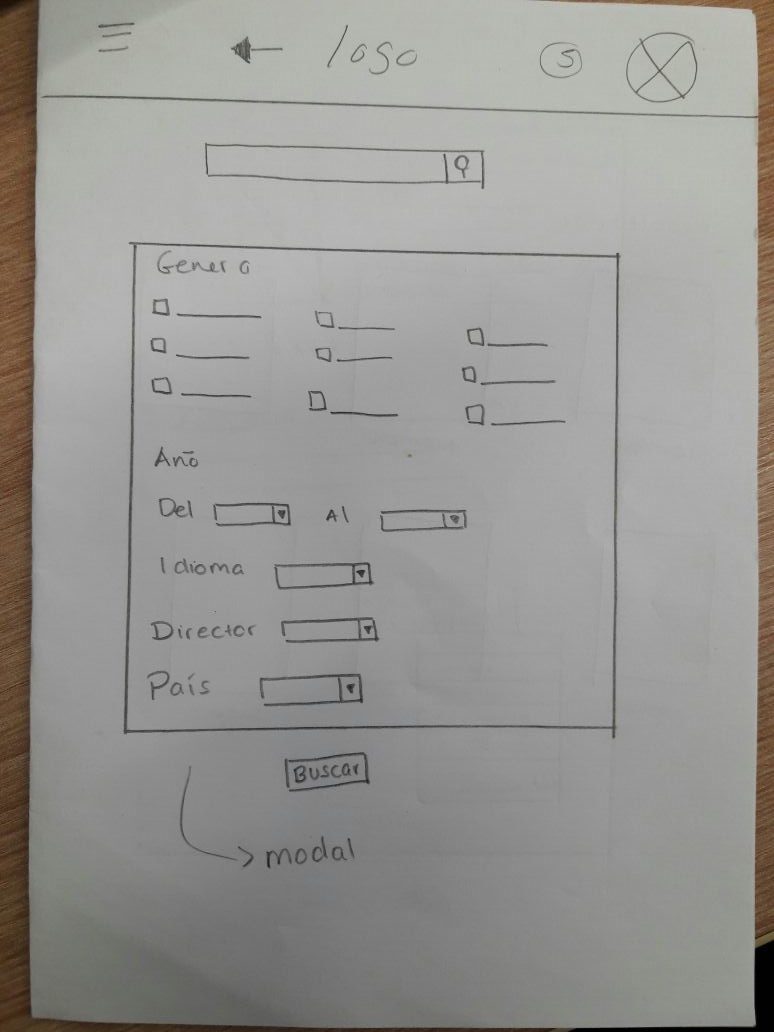 logo S
Genero
Año
Del Al
Idioma
Director
País
Buscar
modal